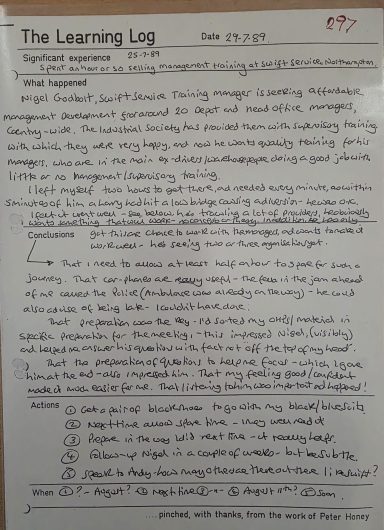 297
The Learning Log Date 29-7-89
Significant experience 25-7-89
Spent an hour or so selling management training at Swift Service, Northampton.
What happened
Nigel Godbolt, Swift Service Training manager is seeking affordable
management development for around 20 Depot and Head office managers,
Country-wide. The Industrial Society has provided them with supervisory training
with which, they were very happy, and now he wants quality training for his
managers, who are in the main ex-divers/warehouse people doing a good job with
little or no management/supervisory training.
I left myself two hours to get there, and needed every minute, as within
5 minutes of him a lorry had hit a low bridge causing a diversion - he was OK.
I felt it went well - see below. he's trawling a lot of providers, he obviously
wants something that will work - no
Conclusions got this one chance to work with the managers, and wants to make it
work well - he's seeing two or three organisations yet.
→ That I need to allow at least half an hour to spare for such a
journey. That car-phones are really useful - the fella in the jam ahead
of me called the Police (Ambulance was already on the way) - he could
also advise of being late - I couldn't have done.
That preparation was the key - I'd sorted my OHPs/material in
specific preparation for the meeting - this impressed Nigel, (visibly)
and helped me answer his questions with fact not off the top of my head.
That the preparation of questions to help me focus - which I gave
him at the end - also impressed him. That my feeling good/confident
made it much easier for me. That listening to him was important and happened!
Actions ① Get a pair of black shoes to go with my black/blue suits.
② Next time allow spare time - I may well need it
③ Prepare in the way I did next time - it really helps.
④ Follow-up Nigel in a couple of weeks - but be subtle.
⑤ Speak to Andy - how many others are there out there like Swift?
When ① ? - August? ② Next time ③ -"- ④ August 11th? ⑤ Soon.
.... pinched, with thanks, from the work of Peter Honey